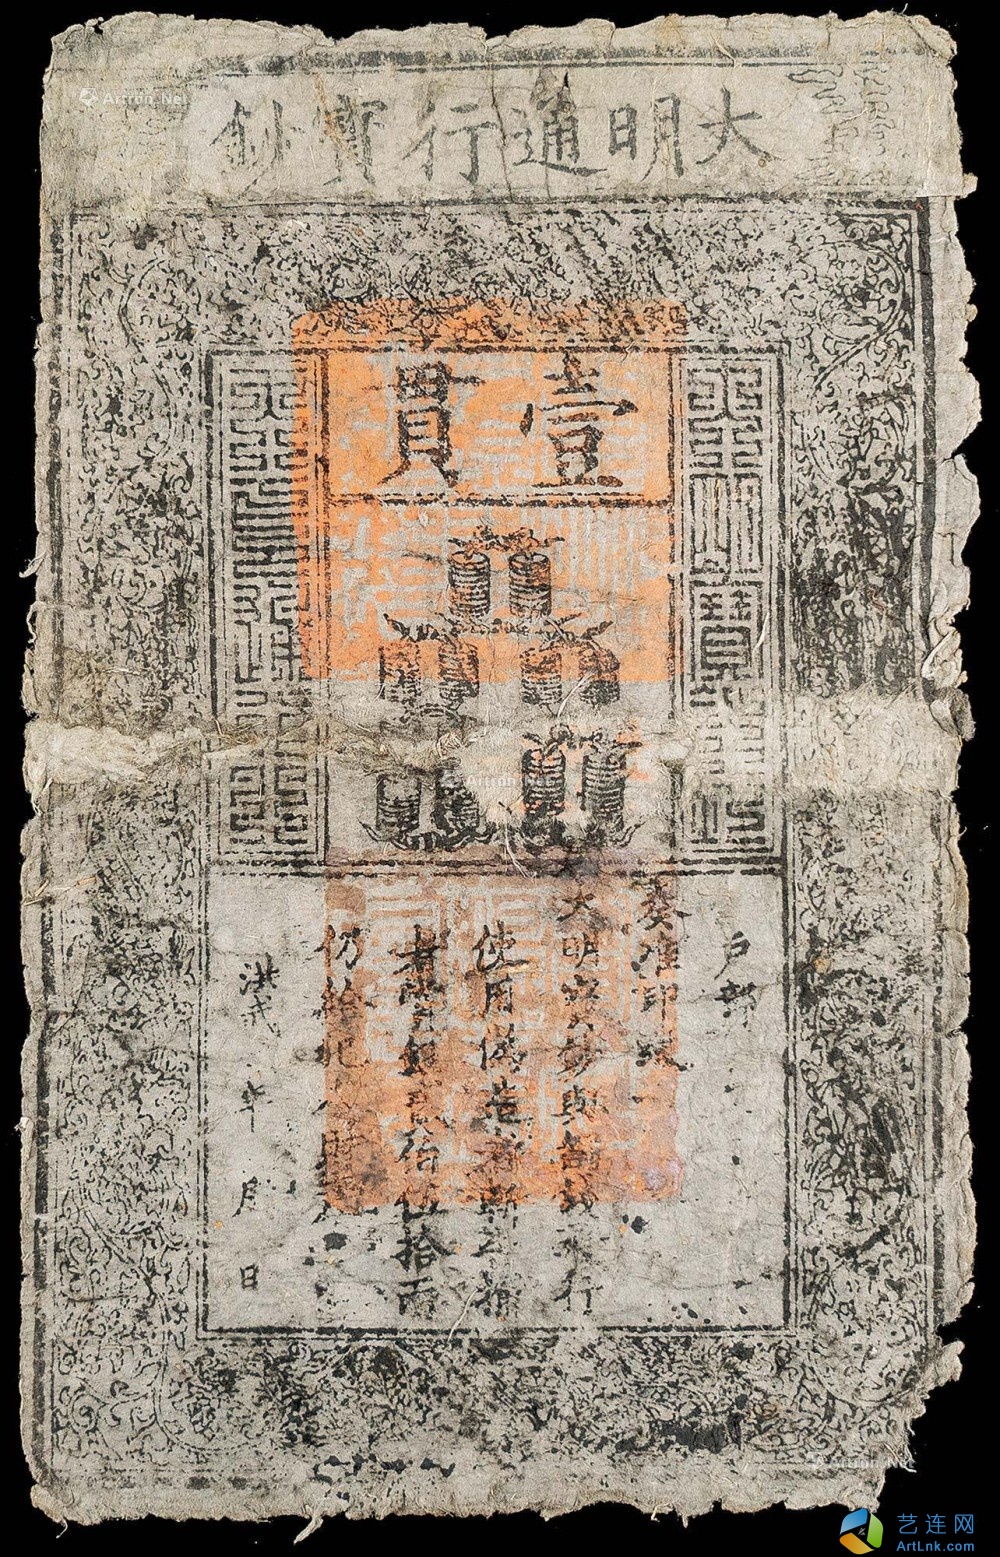 大明通行寶鈔
壹貫
户部
奏准印造
大明寶鈔與銅錢通行
使用偽造者斬告捕
者賞銀貳佰伍拾兩
仍給犯人財產
洪武 年 月 日
Artron.Net
Artron.Net
Artron.Net
Artron.Net
艺连网
ArtLnk.com